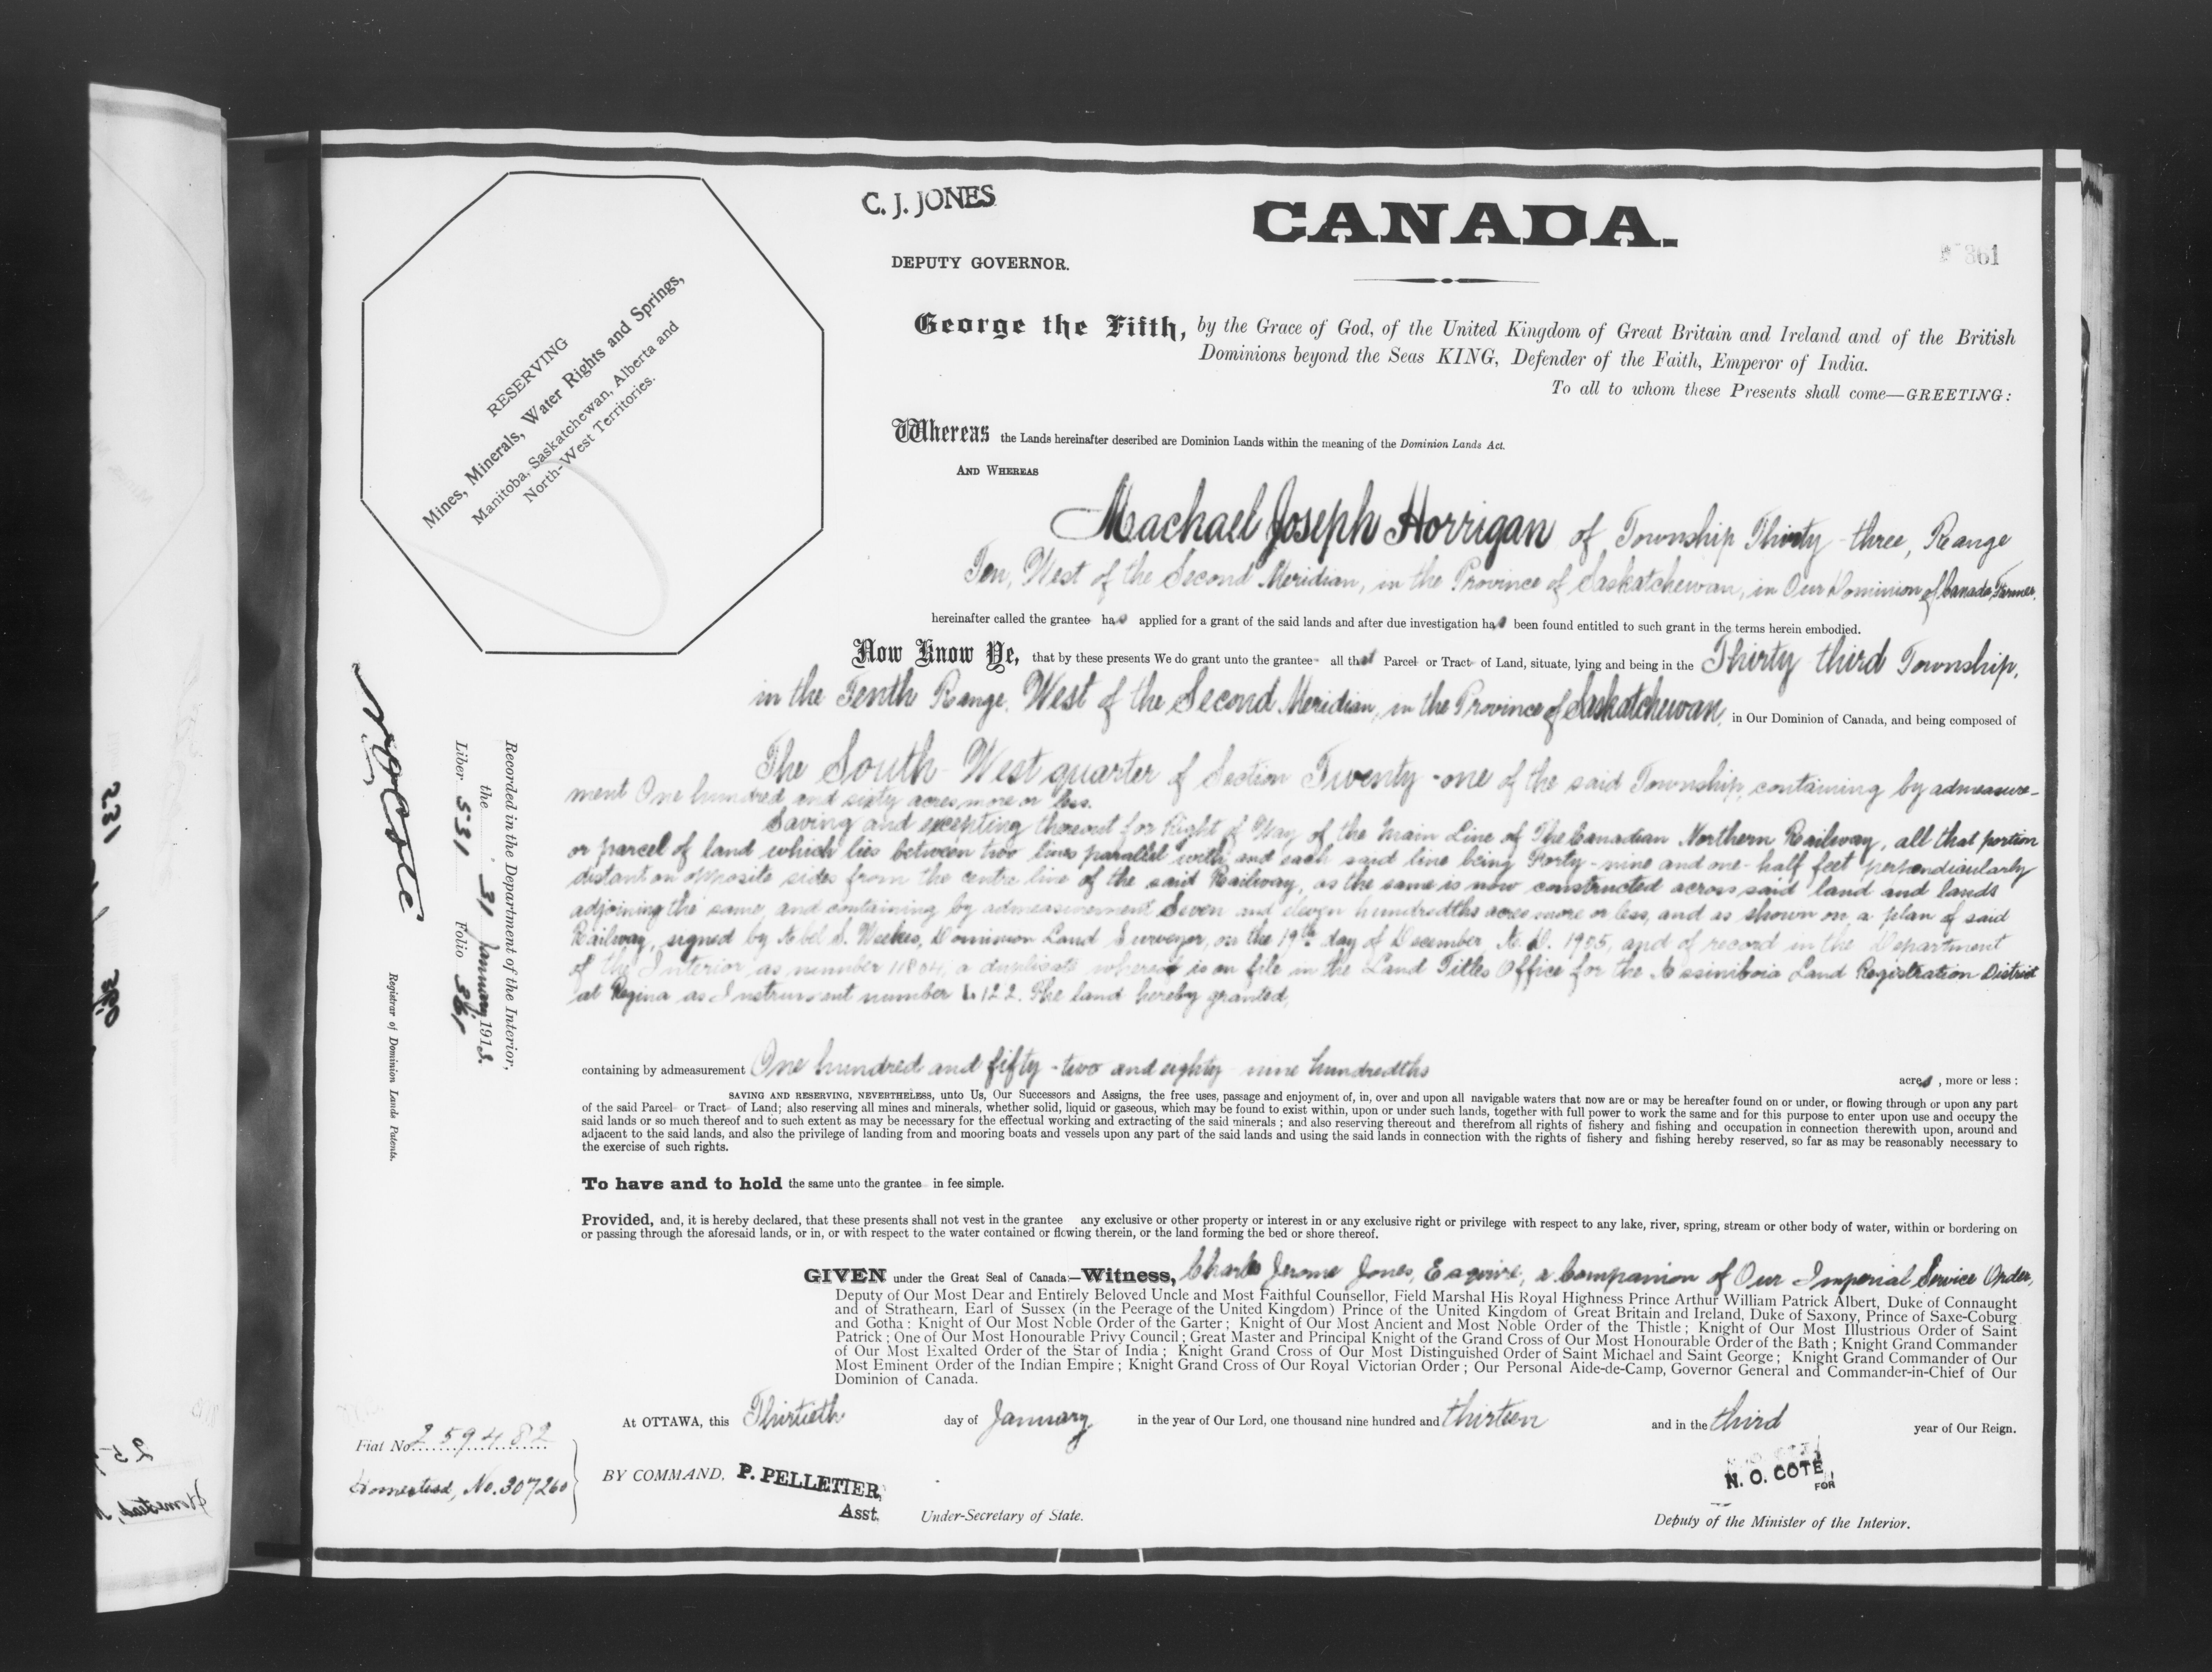 C. J. JONES
DEPUTY GOVERNOR.
CANADA.
361
RESERVING
Mines, Minerals, Water Rights and Springs,
Manitoba, Saskatchewan, Alberta and
North-West Territories.
George the Fifth, by the Grace of God, of the United Kingdom of Great Britain and Ireland and of the British
Dominions beyond the Seas KING, Defender of the Faith, Emperor of India.
To all to whom these Presents shall come—GREETING:
Whereas the Lands hereinafter described are Dominion Lands within the meaning of the Dominion Lands Act.
AND WHEREAS
Machael Joseph Horrigan of Township Thirty-three, Range
Ten, West of the Second Meridian, in the Province of Saskatchewan, in Our Dominion of Canada, Farmer,
hereinafter called the grantee has applied for a grant of the said lands and after due investigation has been found entitled to such grant in the terms herein embodied.
Now Know Ye, that by these presents We do grant unto the grantee all that Parcel or Tract of Land, situate, lying and being in the Thirty third Township,
in the Tenth Range, West of the Second Meridian, in the Province of Saskatchewan, in Our Dominion of Canada, and being composed of
The South-West quarter of Section Twenty-one of the said Township, containing by admeasure-
ment One hundred and sixty acres more or less.
Saving and excepting thereout for Right of Way of the Main Line of The Canadian Northern Railway, all that portion
or parcel of land which lies between two lines parallel with and each said line being Forty-nine and one-half feet perpendicularly
distant on opposite sides from the centre line of the said Railway, as the same is now constructed across said land and lands
adjoining the same, and containing by admeasurement Seven and eleven hundredths acres more or less, and as shown on a plan of said
Railway, signed by Abel S. Weekes, Dominion Land Surveyor, on the 19th day of December, A.D. 1905, and of record in the Department
of the Interior as number 11804, a duplicate whereof is on file in the Land Titles Office for the Assiniboia Land Registration District
at Regina as Instrument number 122. The land hereby granted,
containing by admeasurement One hundred and fifty-two and eighty-nine hundredths acres, more or less:
SAVING AND RESERVING, NEVERTHELESS, unto Us, Our Successors and Assigns, the free uses, passage and enjoyment of, in, over and upon all navigable waters that now are or may be hereafter found on or under, or flowing through or upon any part
of the said Parcel or Tract of Land; also reserving all mines and minerals, whether solid, liquid or gaseous, which may be found to exist within, upon or under such lands, together with full power to work the same and for this purpose to enter upon use and occupy the
said lands or so much thereof and to such extent as may be necessary for the effectual working and extracting of the said minerals; and also reserving thereout and therefrom all rights of fishery and fishing and occupation in connection therewith upon, around and
adjacent to the said lands, and also the privilege of landing from and mooring boats and vessels upon any part of the said lands and using the said lands in connection with the rights of fishery and fishing hereby reserved, so far as may be reasonably necessary to
the exercise of such rights.
To have and to hold the same unto the grantee in fee simple.
Provided, and, it is hereby declared, that these presents shall not vest in the grantee any exclusive or other property or interest in or any exclusive right or privilege with respect to any lake, river, spring, stream or other body of water, within or bordering on
or passing through the aforesaid lands, or in, or with respect to the water contained or flowing therein, or the land forming the bed or shore thereof.
GIVEN under the Great Seal of Canada:—Witness, Charles Jerome Jones, Esquire, a Companion of Our Imperial Service Order,
Deputy of Our Most Dear and Entirely Beloved Uncle and Most Faithful Counsellor, Field Marshal His Royal Highness Prince Arthur William Patrick Albert, Duke of Connaught
and of Strathearn, Earl of Sussex (in the Peerage of the United Kingdom) Prince of the United Kingdom of Great Britain and Ireland, Duke of Saxony, Prince of Saxe-Coburg
and Gotha: Knight of Our Most Noble Order of the Garter; Knight of Our Most Ancient and Most Noble Order of the Thistle; Knight of Our Most Illustrious Order of Saint
Patrick; One of Our Most Honourable Privy Council; Great Master and Principal Knight of the Grand Cross of Our Most Honourable Order of the Bath; Knight Grand Commander
of Our Most Exalted Order of the Star of India; Knight Grand Cross of Our Most Distinguished Order of Saint Michael and Saint George; Knight Grand Commander of Our
Most Eminent Order of the Indian Empire; Knight Grand Cross of Our Royal Victorian Order; Our Personal Aide-de-Camp, Governor General and Commander-in-Chief of Our
Dominion of Canada.
At OTTAWA, this Thirtieth day of January in the year of Our Lord, one thousand nine hundred and thirteen and in the third year of Our Reign.
Fiat No. 259482
Homestead, No. 307260
BY COMMAND, P. PELLETIER,
Asst. Under-Secretary of State.
N. O. COTE,
FOR
Deputy of the Minister of the Interior.
Recorded in the Department of the Interior,
the 31 January 1913.
Liber 531 Folio 361
N O Cote
Registrar of Dominion Lands Patents.
231
360